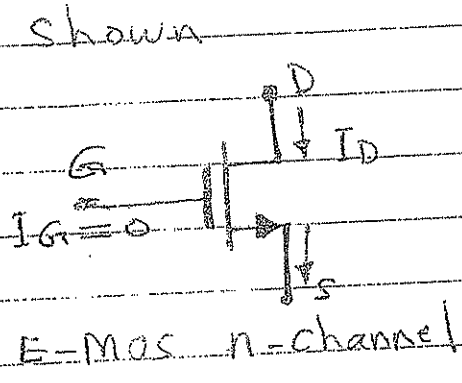 Shown
D
G
I_D
I_G = 0
S
E-MOS n-channel